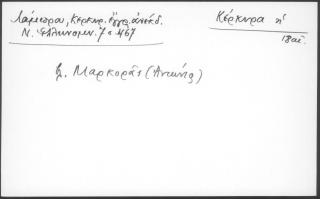 Λάμπρου, Κερκυρ. ἔγγρ. ἀνέκδ.
Ν. Ἑλληνομν. 7 σ 467
Κέρκυρα
18 αἰ.
Μαρκορᾶς (Ἀντώνης)